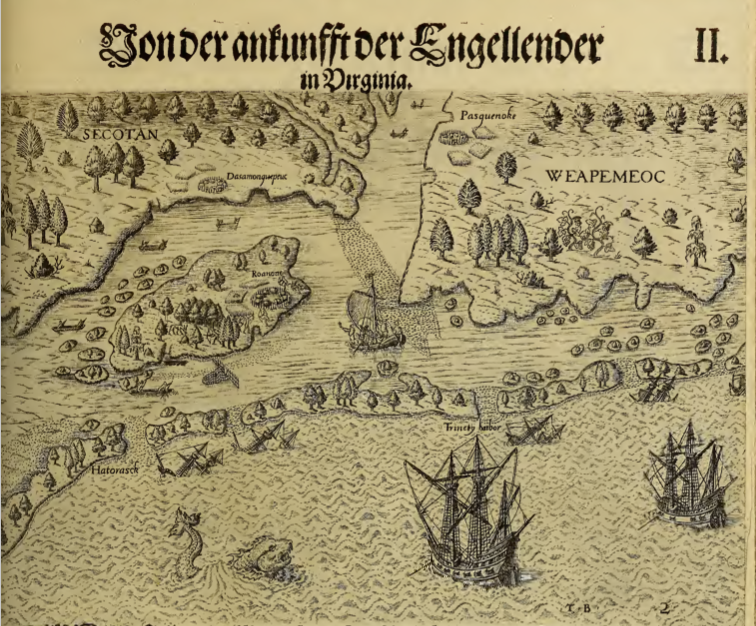 Von der ankunfft der Engellender II.
in Virginia.
Pasquenoke
SECOTAN
WEAPEMEOC
Roanoac
Trinety harbor
Hatorasck
T · B 2